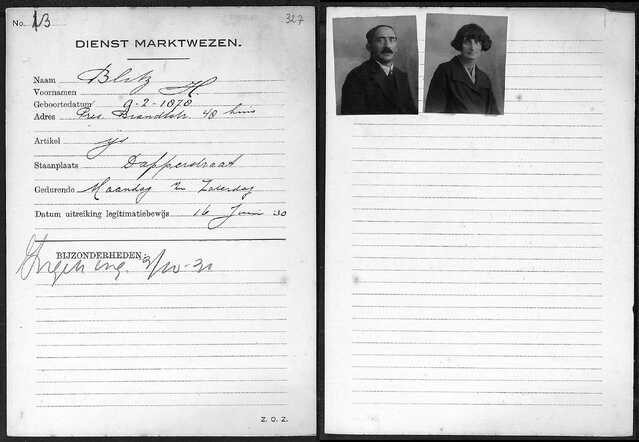 No. 13
327
DIENST MARKTWEZEN.
Naam Blitz
Voornamen H.
Geboortedatum 9-2-1878
Adres Pres. Brandtstr. 48 huis
Artikel ijs
Staanplaats Dapperstraat
Gedurende Maandag Zaterdag
Datum uitreiking legitimatiebewijs 16 Juni 30
BIJZONDERHEDEN:
Z. O. Z.